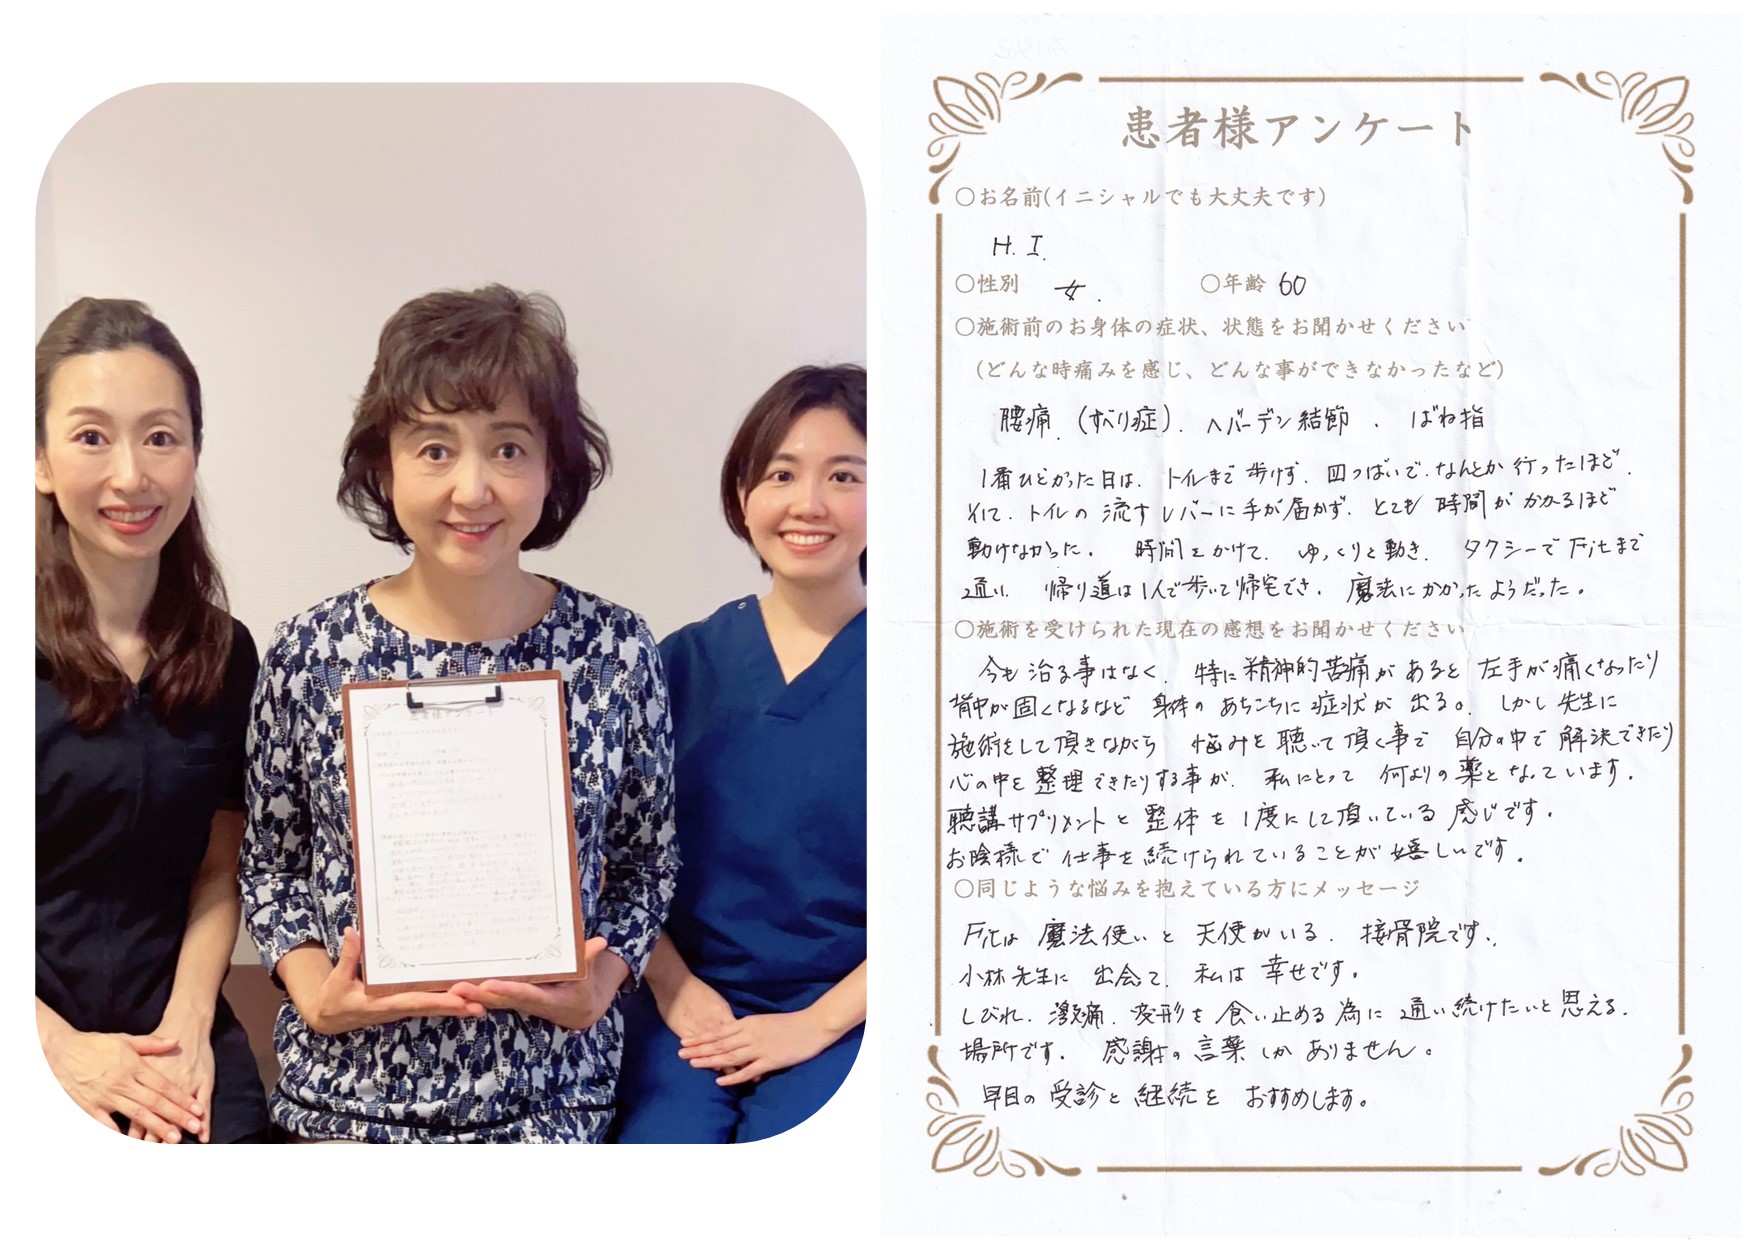 患者様アンケート
〇お名前(イニシャルでも大丈夫です)
H. I.
〇性別 女. 〇年齢 60
〇施術前のお身体の症状、状態をお聞かせください
(どんな時痛みを感じ、どんな事ができなかったなど)
腰痛.(すべり症).ヘバーデン結節.ばね指
1番ひどかった日は、トイレまで歩けず、四つばいで、なんとか行ったほど、
そして、トイレの流すレバーに手が届かず、とても時間がかかるほど
動けなかった。時間をかけて、ゆっくりと動き、タクシーでFitまで
通い、帰り道は1人で歩いて帰宅でき、魔法にかかったようだった。
〇施術を受けられた現在の感想をお聞かせください
今も治る事はなく、特に精神的苦痛があると左手が痛くなったり
背中が固くなるなど身体のあちこちに症状が出る。しかし先生に
施術をして頂きながら悩みを聴いて頂く事で自分の中で解決できたり
心の中を整理できたりする事が、私にとって何よりの薬となっています。
聴講サプリメントと整体を1度にして頂いている感じです。
お陰様で仕事を続けられていることが嬉しいです。
〇同じような悩みを抱えている方にメッセージ
Fitは魔法使いと天使がいる、接骨院です。
小林先生に出会て、私は幸せです。
しびれ、激痛、変形を食い止める為に通い続けたいと思える、
場所です。感謝の言葉しかありません。
早目の受診と継続をおすすめします。